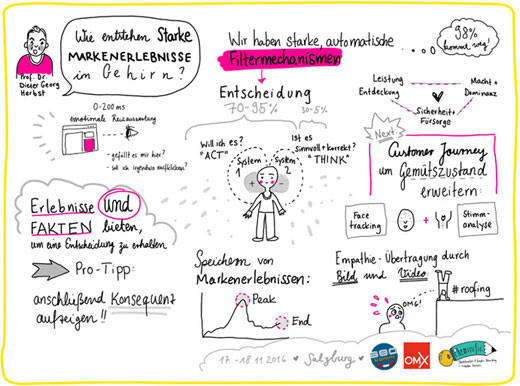 Wie entstehen starke
MARKENERLEBNISSE
in Gehirn?
Prof. Dr.
Dieter Georg
Herbst
Wir haben starke, automatische
Filtermechanismen
98%
kommt weg!
Entscheidung
70-95% 30-5%
0-200ms
emotionale Reizauswertung
- gefällt es mir hier?
- soll ich irgendwo draufklicken?
Will ich es?
"ACT"
Ist es
sinnvoll + korrekt?
"THINK"
System
1
System
2
Leistung
Entdeckung
Macht +
Dominanz
Sicherheit +
Fürsorge
Next
Customer Journey
um Gemütszustand
erweitern:
Face
tracking
+
Stimm-
analyse
Erlebnisse und
FAKTEN bieten,
um eine Entscheidung zu erhalten
Pro-Tipp:
anschließend Konsequenz
aufzeigen!!
Speichern von
Markenerlebnissen:
Peak
End
Empathie-Übertragung durch
Bild und Video:
OMG!
#roofing
17.-18.11.2016 Salzburg
SEO
OMX